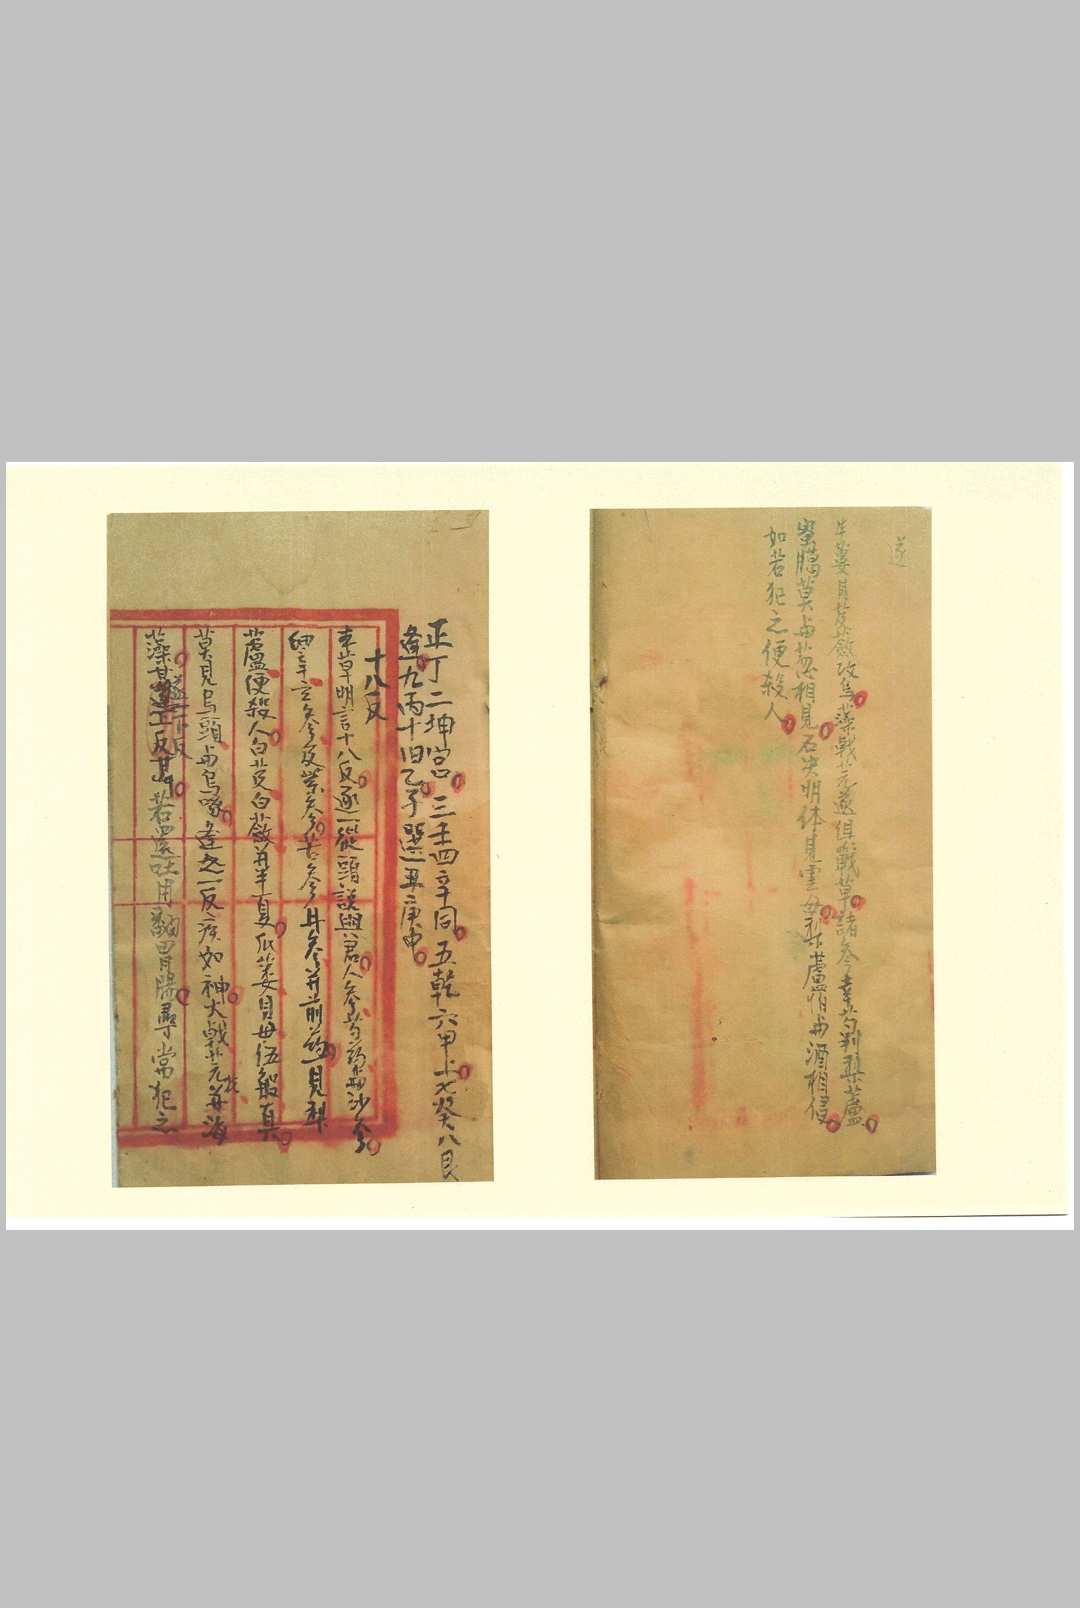 正丁二坤宮三壬四辛同五乾六甲上七癸八艮
逢九丙十旧乙子巽丑庚中
十八反
本草明言十八反逐一從頭説與君人參芍药与沙參
細辛玄參及紫參苦參丹參并前药一見梨
蘆便殺人白芨白蘞并半夏瓜蒌貝母伍般真
莫見烏頭与烏喙逢之一反疾如神大戟芫花并海
藻甘遂上反甘草若還吐用翻胃腸尋常犯之
遂
半蒌貝芨歛攻烏藻戟芫遂俱戰草諸參辛芍判梨蘆
蜜臈莫与葱相見石决明休見雲母梨蘆与酒相侵
如若犯之便殺人